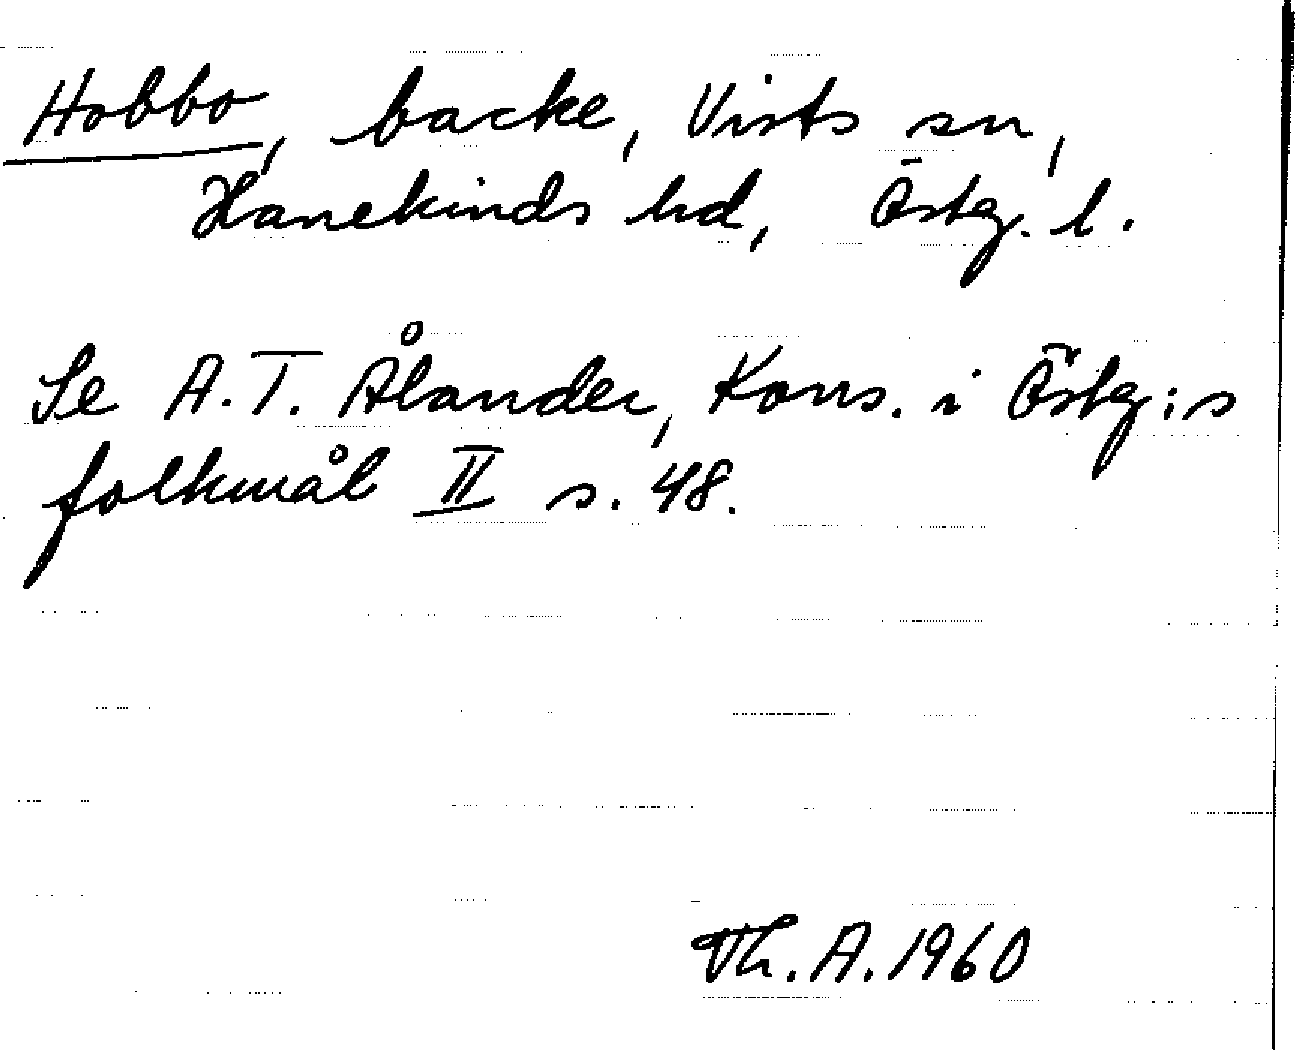 Hobbo, backe, Vists sn,
Hanekinds hd, Östg. l.
Se A.T. Ålander, Kons. i Östg:s
folkmål II s. 48.
Th. A. 1960